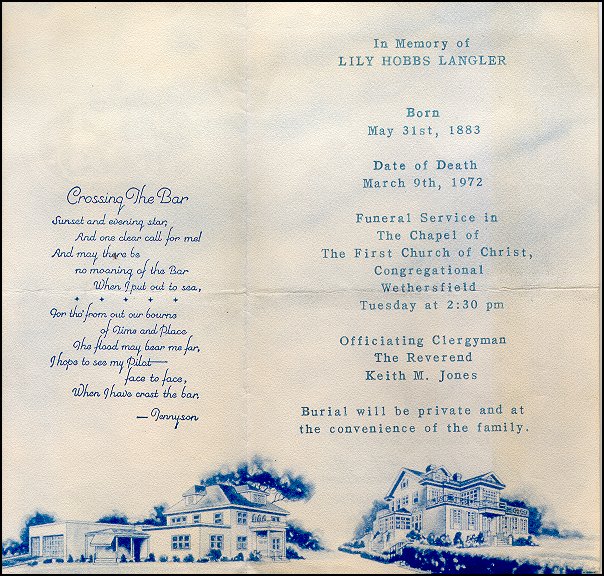 Crossing The Bar
Sunset and evening star,
And one clear call for me!
And may there be
no moaning of the Bar
When I put out to sea,
For tho' from out our bourne
of Time and Place
The flood may bear me far,
I hope to see my Pilot—
face to face,
When I have crost the bar.
— Tennyson
In Memory of
LILY HOBBS LANGLER
Born
May 31st, 1883
Date of Death
March 9th, 1972
Funeral Service in
The Chapel of
The First Church of Christ,
Congregational
Wethersfield
Tuesday at 2:30 pm
Officiating Clergyman
The Reverend
Keith M. Jones
Burial will be private and at
the convenience of the family.